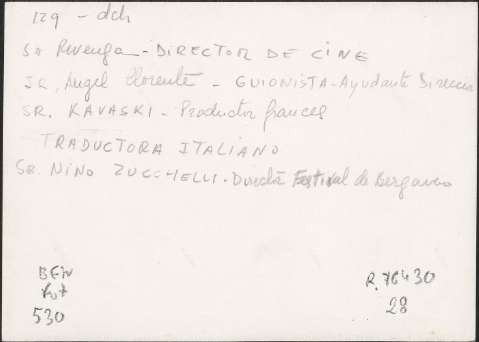 129 - dch
Sr Revenga - DIRECTOR DE CINE
SR. Angel Llorente - GUIONISTA - Ayudante Direccio
SR. KAVASKI - Productor frances
TRADUCTORA ITALIANO
SR. NINO ZUCCHELLI - Director Festival de Bergamo
BFIV
530
R. 76430
28